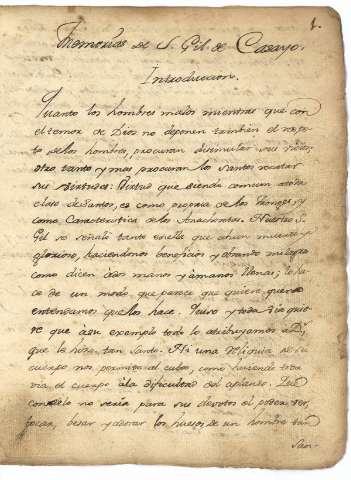 1.
Memorias de S. Gil de Casayo.
Introduccion.
Quanto los hombres malos mientras que con
el temor de Dios no deponen tambien el respe
to de los hombres, procuran disimular sus vicios;
otro tanto y mas procuran los santos recatar
sus virtudes: Virtud que siendo comun a toda
clase de Santos, es como propria de los Monges, y
como Caracteristica de los Anachoretas. Nuestro S.
Gil se señaló tanto en ella que aun muerto y
glorioso, haciendonos beneficios y obrando milagros
como dicen a dos manos y a manos llenas; lo ha
ce de un modo que parece que quiere que no
entendamos que los hace. Quiso y todavia quie
re que a su exemplo todo lo atribuyamos a D.
que le hizo tan Santo. Ni una Reliquia de su
cuerpo nos permite al culto, como
el cuerpo a la dificultad del
consuelo no seria para sus devotos el poder
besar y adorar los huesos de un hombre tan
San-